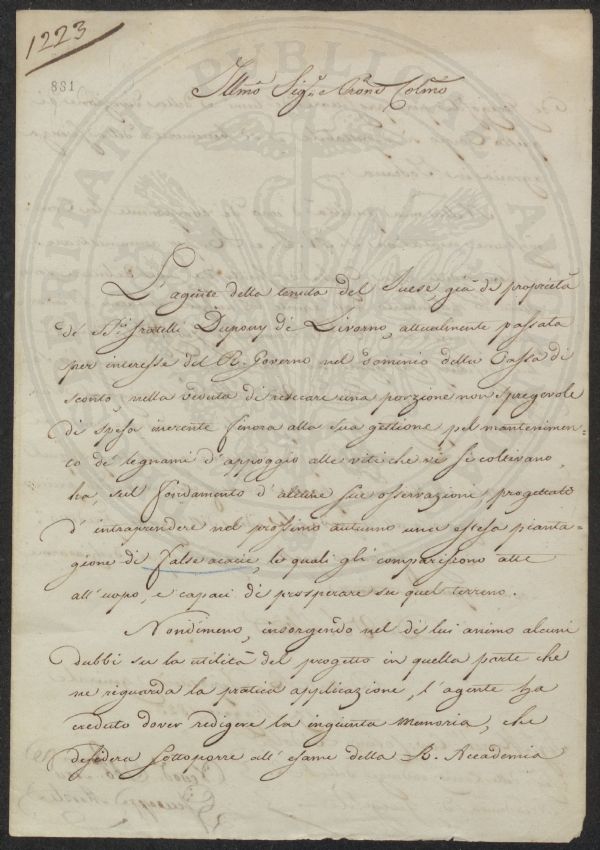 1223
881
Illmo Sigr. Prone Colmo
L'agente della tenuta del Suese, già di proprietà
de' SSri fratelli Dupouy di Livorno, attualmente passata
per interesse del R. Governo nel dominio della Cassa di
sconto, nella veduta di resecare una porzione non spregevole
di spesa inerente finora alla sua gestione pel mantenimen=
to de' legnami d'appoggio alle viti che vi si coltivano,
ha, sul fondamento d'alcune sue osservazioni, progettato
d'intraprendere nel prossimo autunno una estesa pianta=
gione di false acacie, le quali gli compariscono atte
all'uopo, e capaci di prosperare su quel terreno.
Nondimeno, insorgendo nel di lui animo alcuni
dubbi su la utilità del progetto in quella parte che
ne riguarda la pratica applicazione, l'agente ha
creduto dover redigere la ingiunta Memoria, che
desidera sottoporre all'esame della R. Accademia